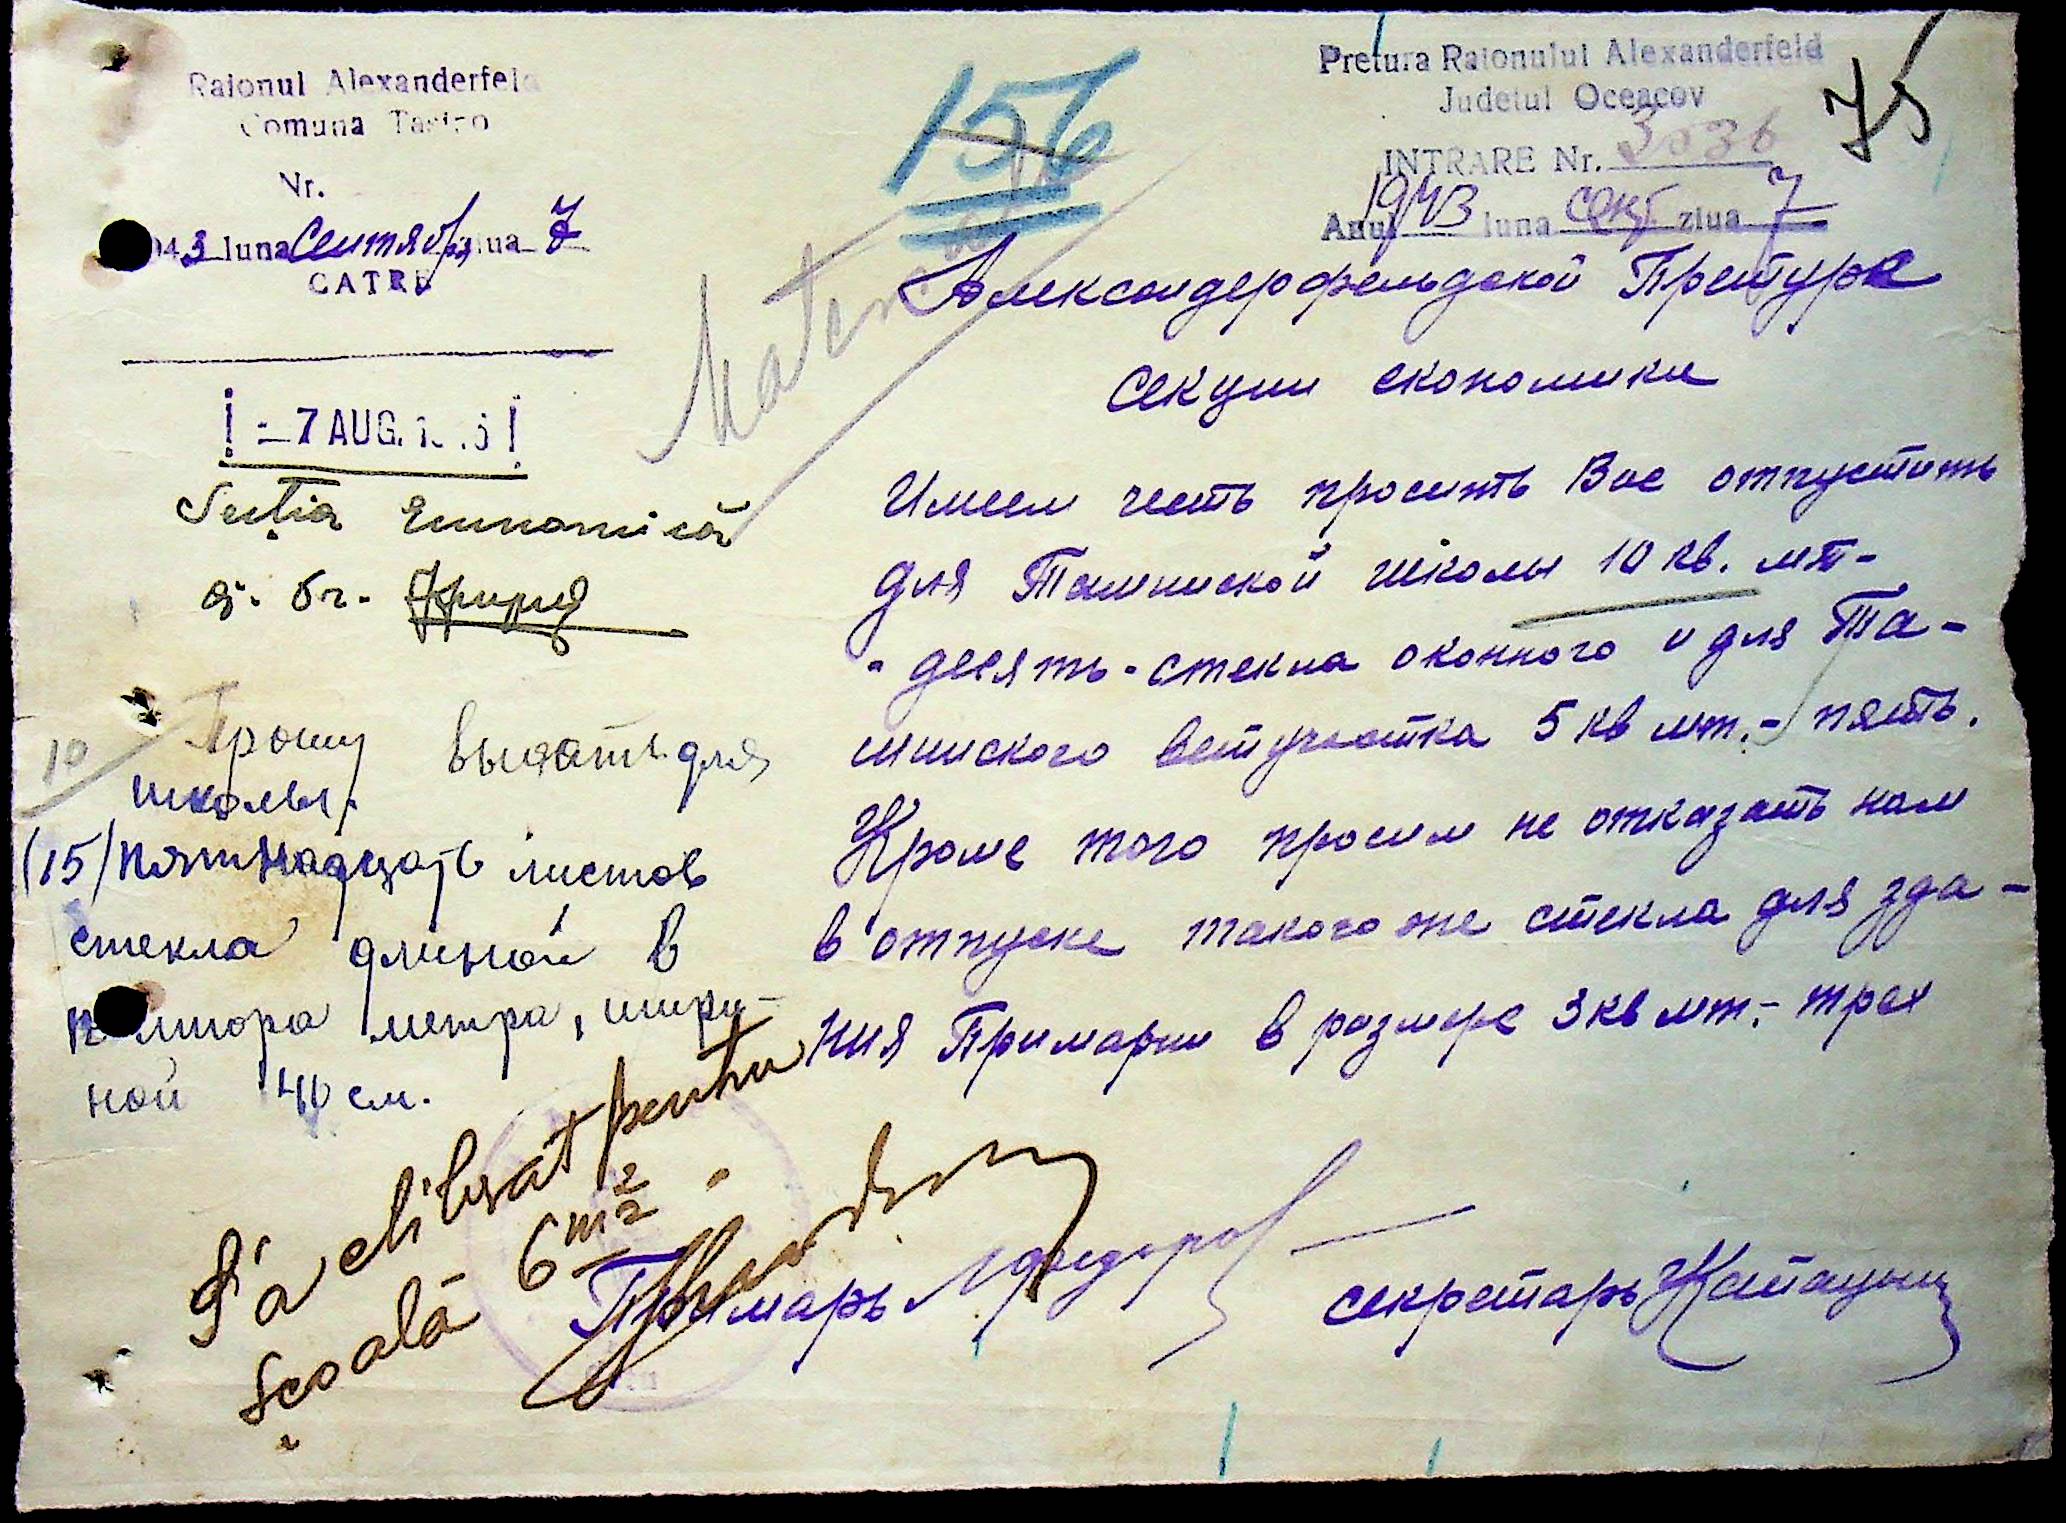 Raionul Alexanderfeld
Comuna
Nr.
943 luna Сентябрь ziua 7
CATRE
- 7 AUG.
Secția Economică
Прошу выдать для
школы.
(15) пятнадцать листов
стекла длиной в
полтора метра, шири-
ной 40 см.
10
S'a elibrat pentru
școală 6 m2
156
Pretura Raionului Alexanderfeld
Judetul Oceacov
INTRARE Nr. 3036
Anul 1943 luna сент ziua 7
75
Александерфельдской Претуре
секции економики
Имеем честь просить Вас отпустить
для Ташинской школы 10 кв. мт-
- десять - стекла оконного и для Та-
шинского ветучастка 5 кв мт. - пять.
Кроме того просим не отказать нам
в отпуске такого же стекла для зда-
ния Примарии в размере 3 кв мт. - трех
Примарь
секретарь